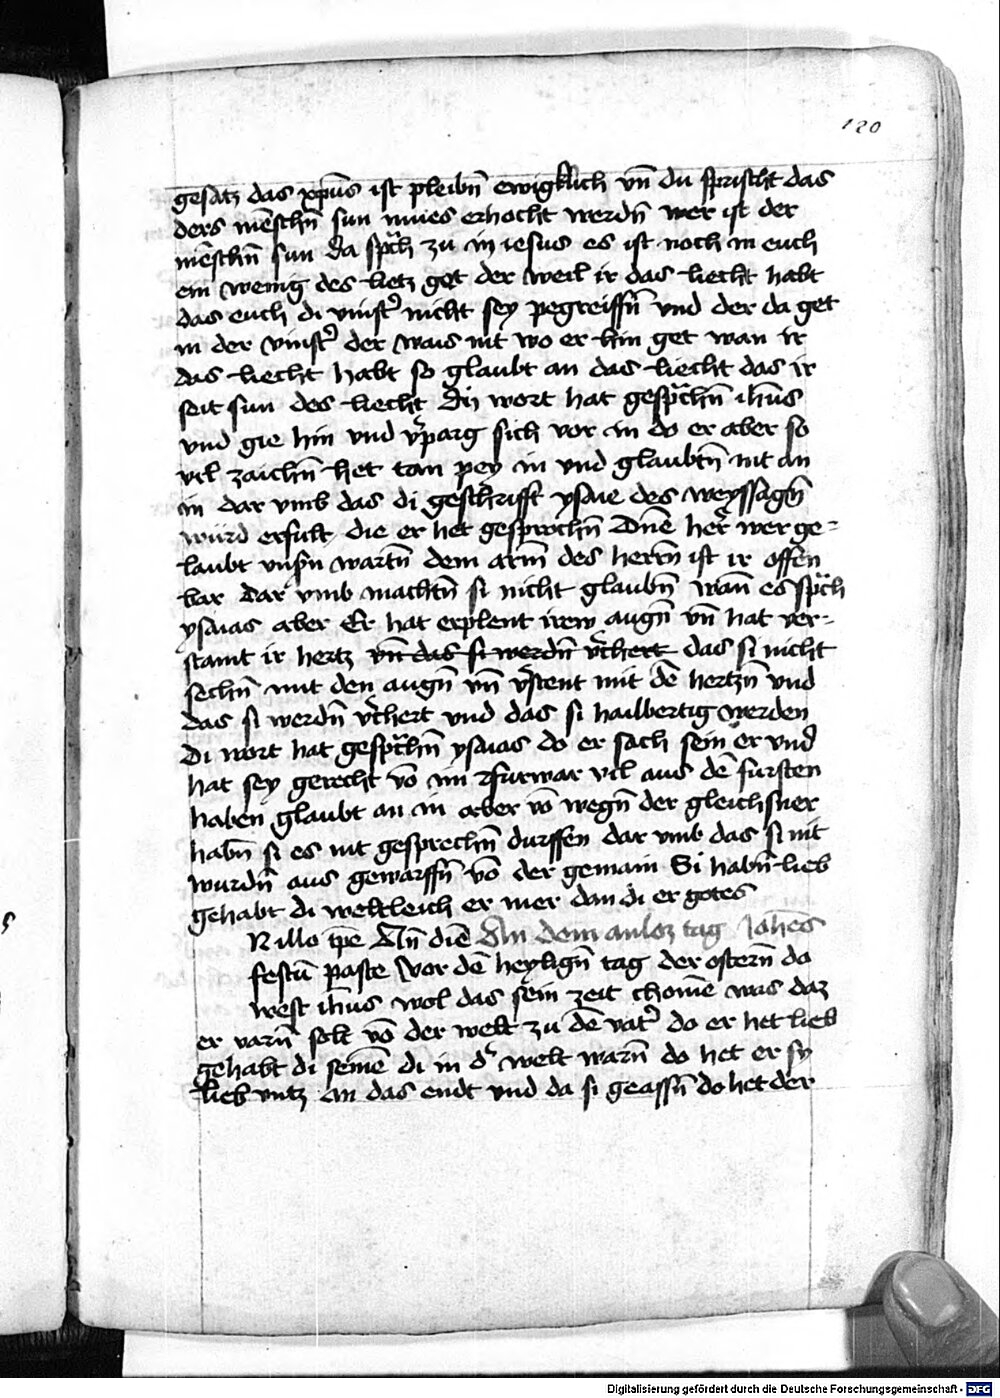 120
gesatz das xp̄us ist pleibn̄ ewigklich vn̄ du sprichst das
ders mēschn̄ sun mues erhocht werdn̄ wer ist der
mēschn̄ sun da sp̄ch zu in iesus es ist noch in euch
ein wenig des lietz get der weil ir das liecht habt
das euch di vinst' nicht sey pegreiffn̄ vnd der da get
in der vinst' der wais nit wo er hin get wan ir
das liecht habt so glaubt an das liecht das ir
seit sun des liecht Di wort hat gesp̄chn̄ ih̄us
vnd gie hin vnd v'parg sich vor in do er aber so
vil zaichn̄ het tan pey in vnd glaubtn̄ nit an
in dar vmb das di geschrifft ysaie des weyssagn̄
würd erfult die er het gesprochn̄ Dn̄e her wer ge-
laubt vnsn̄ wartn̄ dem arm des herrn̄ ist ir offen
bar dar vmb machtn̄ si nicht glaubn̄ wan̄ es sp̄ch
ysaias aber Er hat erplent irew augn̄ vn̄ hat ver-
stamt ir hertz vn̄ das si werdn̄ v'chert das si nicht
sechn̄ mit den augn̄ vn̄ v'stent mit dē hertzn̄ vnd
das si werdn̄ v'chert vnd das si hailbertig werden
Di wort hat gesp̄chn̄ ysaias do er sach sein er vnd
hat sey gerecht vō im furwar vil aus dē fursten
haben glaubt an in aber vō wegn̄ der gleichsner
habn̄ si es nit gesprechn̄ durffen dar vmb das si nit
wurdn̄ aus gewarffn̄ vō der gemain Si habn̄ lieb
gehabt di weltleich er mer dan di er gotes
N illo tp̄e An̄ diē An dem antloz tag Joh̄es
festū paste Vor dē heylign̄ tag der ostern̄ do
west ih̄us wol das sein zeit chomē was daz
er varn̄ solt vō der welt zu dē vat' do er het lieb
gehabt di seinē di in d' welt warn̄ do het er sy
lieb vntz an das endt vnd da si geassn̄ do het der
Digitalisierung gefördert durch die Deutsche Forschungsgemeinschaft - DFG